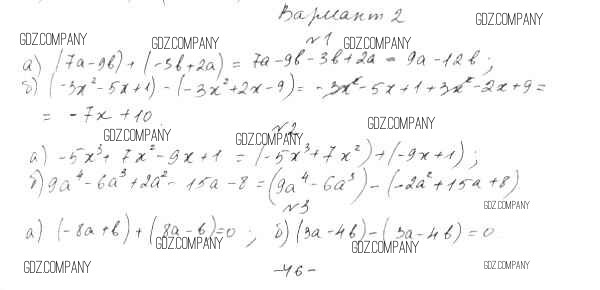 Вариант 2
GDZ.COMPANY
№1
GDZ.COMPANY GDZ.COMPANY GDZ.COMPANY
а) (7a-9b) + (-3b+2a) = 7a-9b-3b+2a = 9a-12b;
б) (-3x²-5x+1) - (-3x²+2x-9) = -3x²-5x+1+3x²-2x+9=
= -7x+10
GDZ.COMPANY
№2
GDZ.COMPANY GDZ.COMPANY
а) -5x³+7x²-9x+1 = (-5x³+7x²)+(-9x+1);
б) 9a⁴-6a³+2a²-15a-8=(9a⁴-6a³)-(-2a²+15a+8)
№3
GDZ.COMPANY
а) (-8a+b)+(8a-b)=0; б) (3a-4b)-(3a-4b)=0
GDZ.COMPANY GDZ.COMPANY
GDZ.COMPANY GDZ.COMPANY
-46-